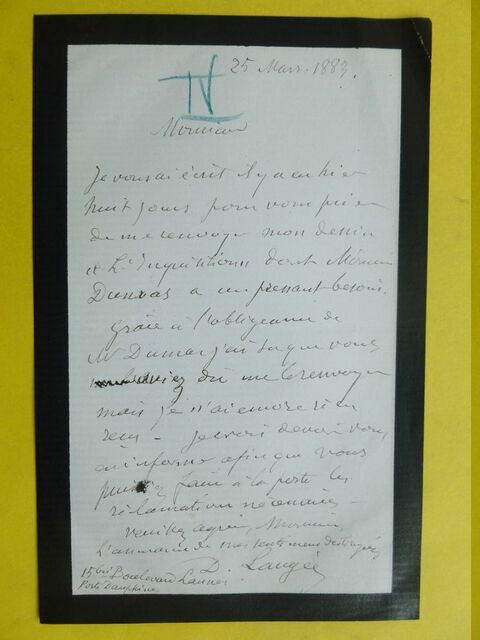 25 Mars. 1883.
IV
Monsieur
Je vous ai écrit il y a eu hier
huit jours pour vous prier
de me renvoyer mon dessin
de L'Inquisition dont Monsieur
Dumas a un pressant besoin.
Grâce à l'obligeance de
Mr Dumas j'ai su que vous
aviez dû me le renvoyer
mais je n'ai encore rien
reçu - Je crois devoir vous
en informer afin que vous
puissiez faire à la poste les
réclamations nécessaires -
Veuillez agréer, Monsieur,
L'assurance de mes sentiments distingués
D. Laugée
15 bis Boulevard Lannes
Porte Dauphine